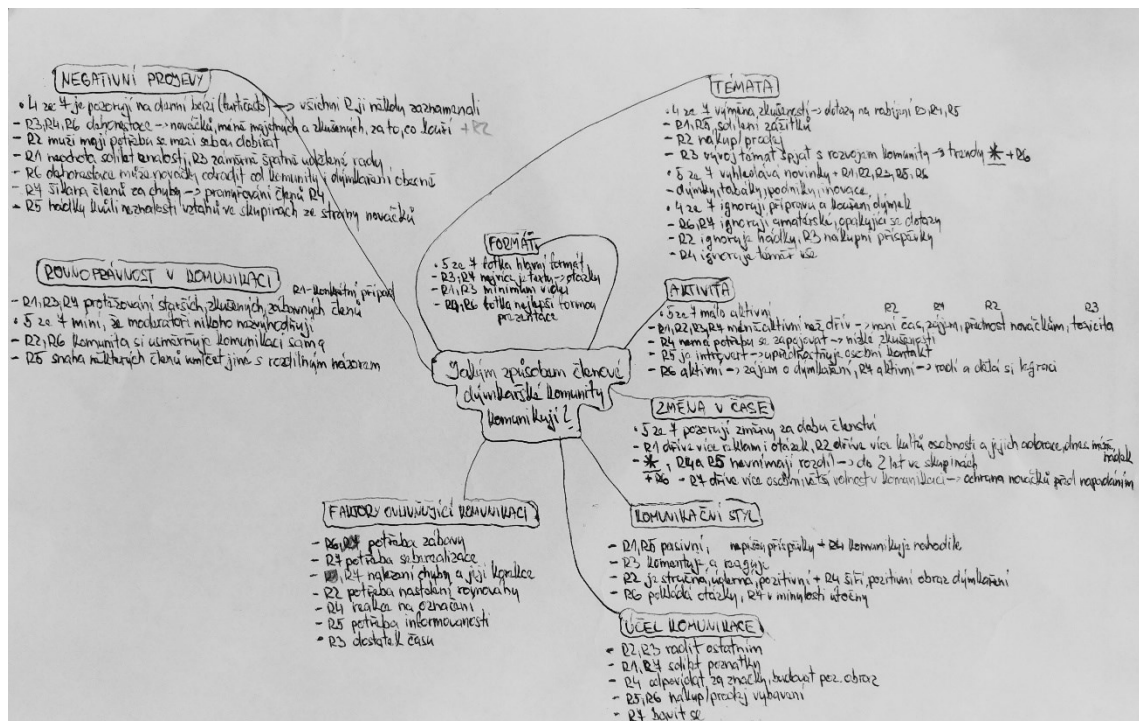 NEGATIVNÍ PROJEVY
• 4 ze 7 je pozorují na denní bázi (turičado) → všichni R ji někdy zaznamenali
- R3, R4, R6 dehonestace → nováčků, méně majetných a zkušených, za to, co kouří + R2
- R2 muži mají potřebu se mezi sebou dobírat
- R1 neochota sdílet znalosti, R3 záměrně špatně udělené rady
- R6 dehonestace může nováčky odradit od komunity i dýmkaření obecně
- R7 šikana členů za chyby → pranýřování členů R4
- R5 hádky kvůli neznalosti vztahů ve skupinách ze strany nováčků
ROVNOPRÁVNOST V KOMUNIKACI
R1 - konkrétní případ
- R1, R3, R4 protěžování starších, zkušených, zábavných členů
• 5 ze 7 míní, že moderátoři nikoho nezvýhodňují
- R2, R6 komunita si usměrňuje komunikaci sama
- R5 snaha některých členů umlčet jiné s rozdílným názorem
FORMÁT
• 5 ze 7 fotka hlavní formát
- R3, R7 nejvíce texty → otázky
- R1, R3 minimum videí
- R4, R6 fotka nejlepší formou
prezentace
Jakým způsobem členové
dýmkařské komunity
komunikují?
TÉMATA
• 4 ze 7 výměna zkušeností → dotazy na nabíjení R1, R5
- R1, R5, sdílení zážitků
- R2 nákup/prodej
- R3 vývoj témat spjat s rozvojem komunity → trendy * + R6
• 5 ze 7 vyhledává novinky + R1, R2, R5, R6
- dýmky, tabáky, podniky, inovace
• 4 ze 7 ignorují přípravu a kouření dýmek
- R6, R7 ignorují amatérské, opakující se dotazy
- R2 ignoruje hádky, R3 nákupní příspěvky
- R4 ignoruje téměř vše
AKTIVITA
• 5 ze 7 málo aktivní
R2 R7 R2 R3
- R1, R2, R3, R7 méně aktivní než dřív → není čas, zájem, přednost nováčkům, toxicita
- R4 nemá potřebu se zapojovat → nízké zkušenosti
- R5 je introvert → upřednostňuje osobní kontakt
- R6 aktivní → zájem o dýmkaření, R7 aktivní → radí a dělá si legraci
ZMĚNA V ČASE
• 5 ze 7 pozorují změny za dobu členství
- R1 dříve více reklam i otázek, R2 dříve více kultů osobnosti a jejich adorace, dnes méně hádek
- *, R4 a R5 nevnímají rozdíl → do 2 let ve skupinách
+ R6 - R7 dříve více osobní, větší volnost v komunikaci → ochrana nováčků před napadáním
KOMUNIKAČNÍ STYL
- R1, R5 pasivní, nepíšou příspěvky + R4 komunikuje nahodile
- R3 komentuje a reaguje
- R2 je stručná, úderná, pozitivní + R4 šíří pozitivní obraz dýmkaření
- R6 pokládá otázky, R7 v minulosti útočný
ÚČEL KOMUNIKACE
- R2, R3 radit ostatním
- R1, R7 sdílet poznatky
- R4 odpovídat za značky, budovat poz. obraz
- R5, R6 nákup/prodej vybavení
- R7 bavit se
FAKTORY OVLIVŇUJÍCÍ KOMUNIKACI
- R6, potřeba zábavy
- R7 potřeba seberealizace
- R7 nalezení chyby a její korekce
- R2 potřeba nastolení rovnováhy
- R4 reakce na označení
- R5 potřeba informovanosti
- R3 dostatek času